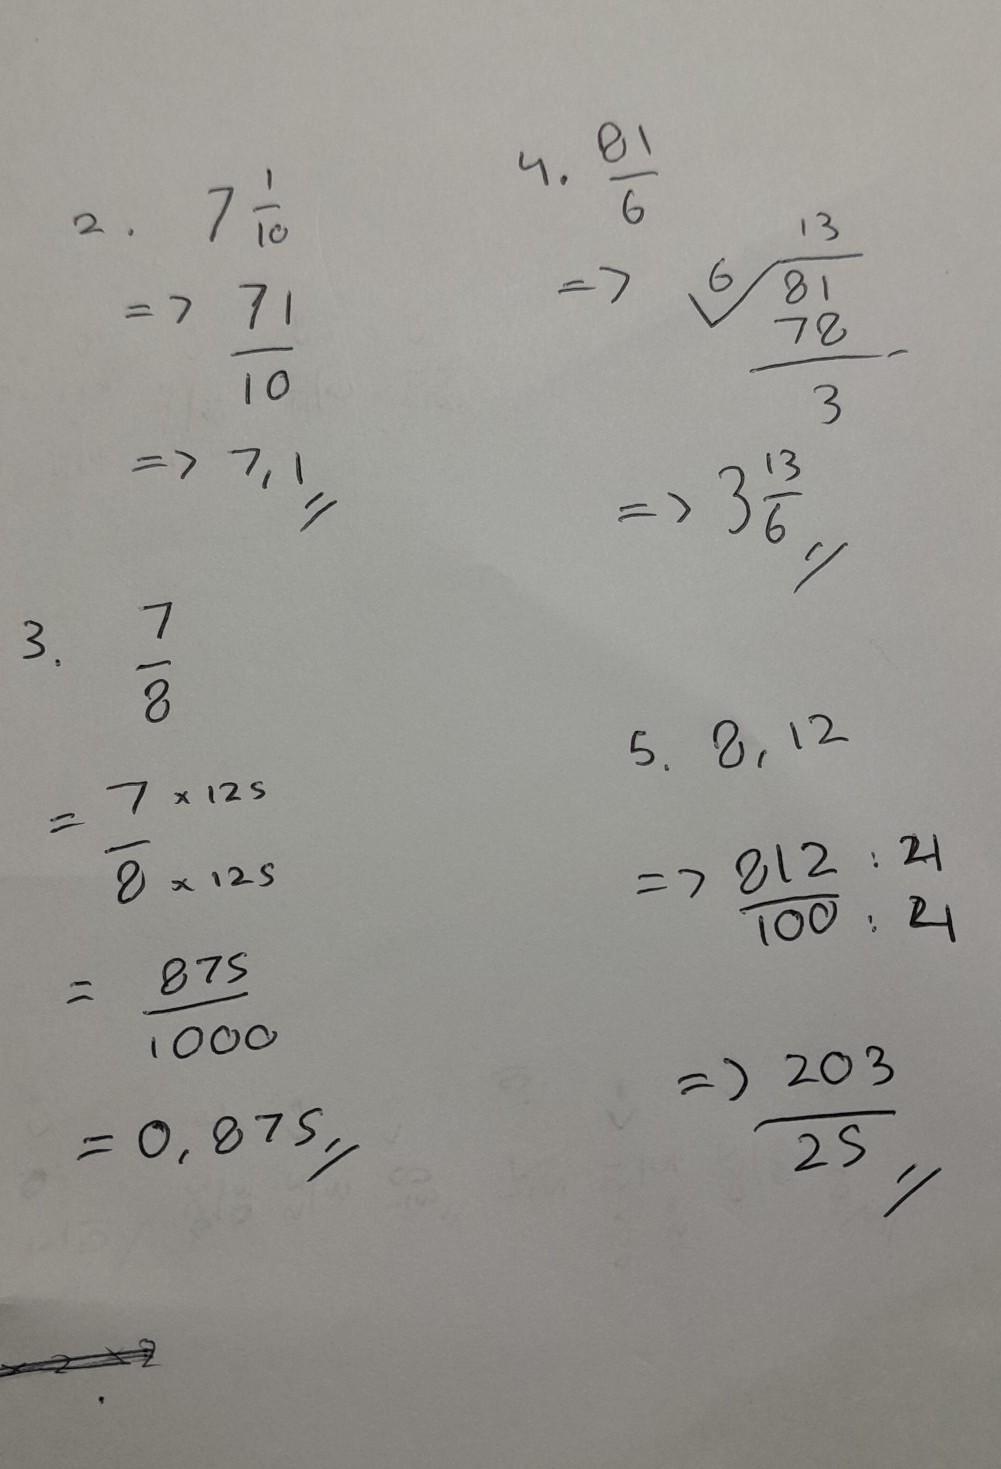 2. 7 1/10
=> 71/10
=> 7,1
3. 7/8
= 7 x 125 / 8 x 125
= 875/1000
= 0,875
4. 81/6
=> 13
6 81
78 -
3
=> 3 13/6
5. 8,12
=> 812 : 4 / 100 : 4
=> 203/25